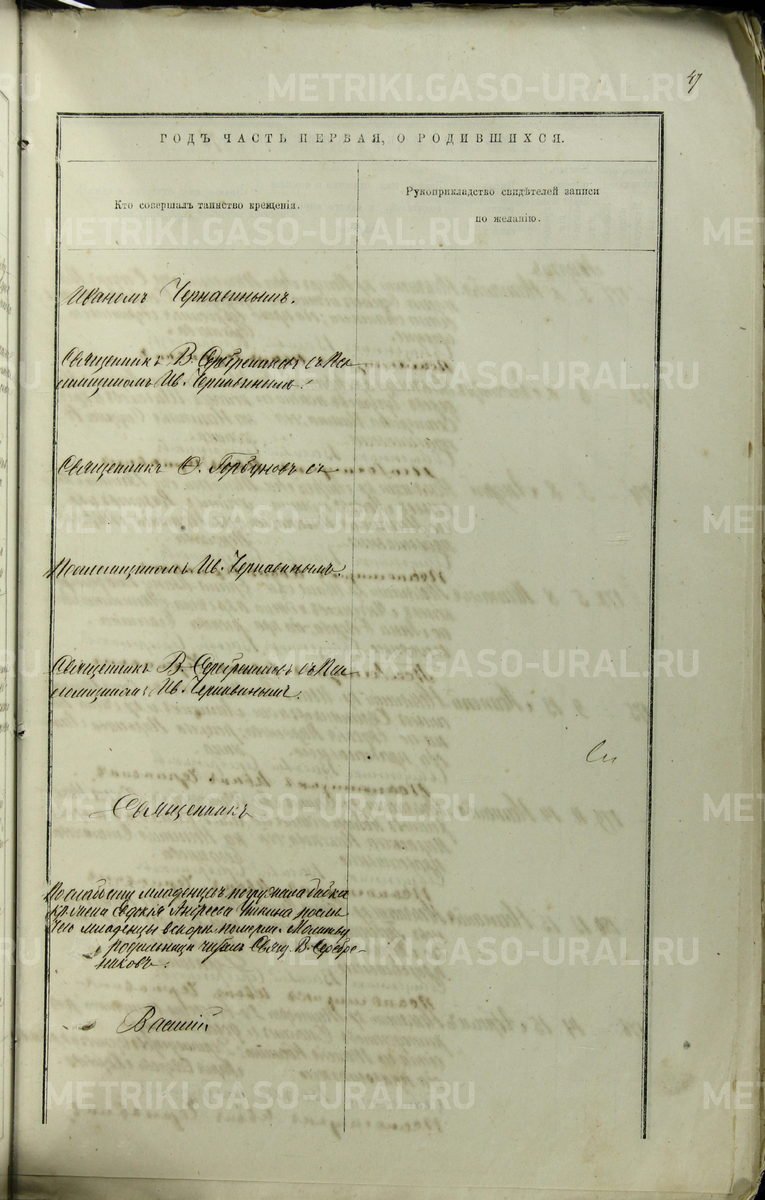 47
ГОДЪ ЧАСТЬ ПЕРВАЯ, О РОДИВШИХСЯ.
Кто совершалъ таинство крещенія.
Рукоприкладство свидѣтелей записи
по желанію.
Иваномъ Чернавинымъ.
Священникъ В. Серебрениковъ съ Пса-
ломщикомъ Ив. Чернавинымъ.
Священникъ Ѳ. Горбуновъ съ
Псаломщикомъ Ив. Чернавинымъ.
Священникъ В. Серебрениковъ съ Пса-
ломщикомъ Ив. Чернавинымъ.
Священникъ
По слабости младенцевъ погружала бабка
младенцы вскорѣ померли. Молитву
родильницѣ читалъ Свящ. В. Серебре-
никовъ.
Василій
METRIKI.GASO-URAL.RU